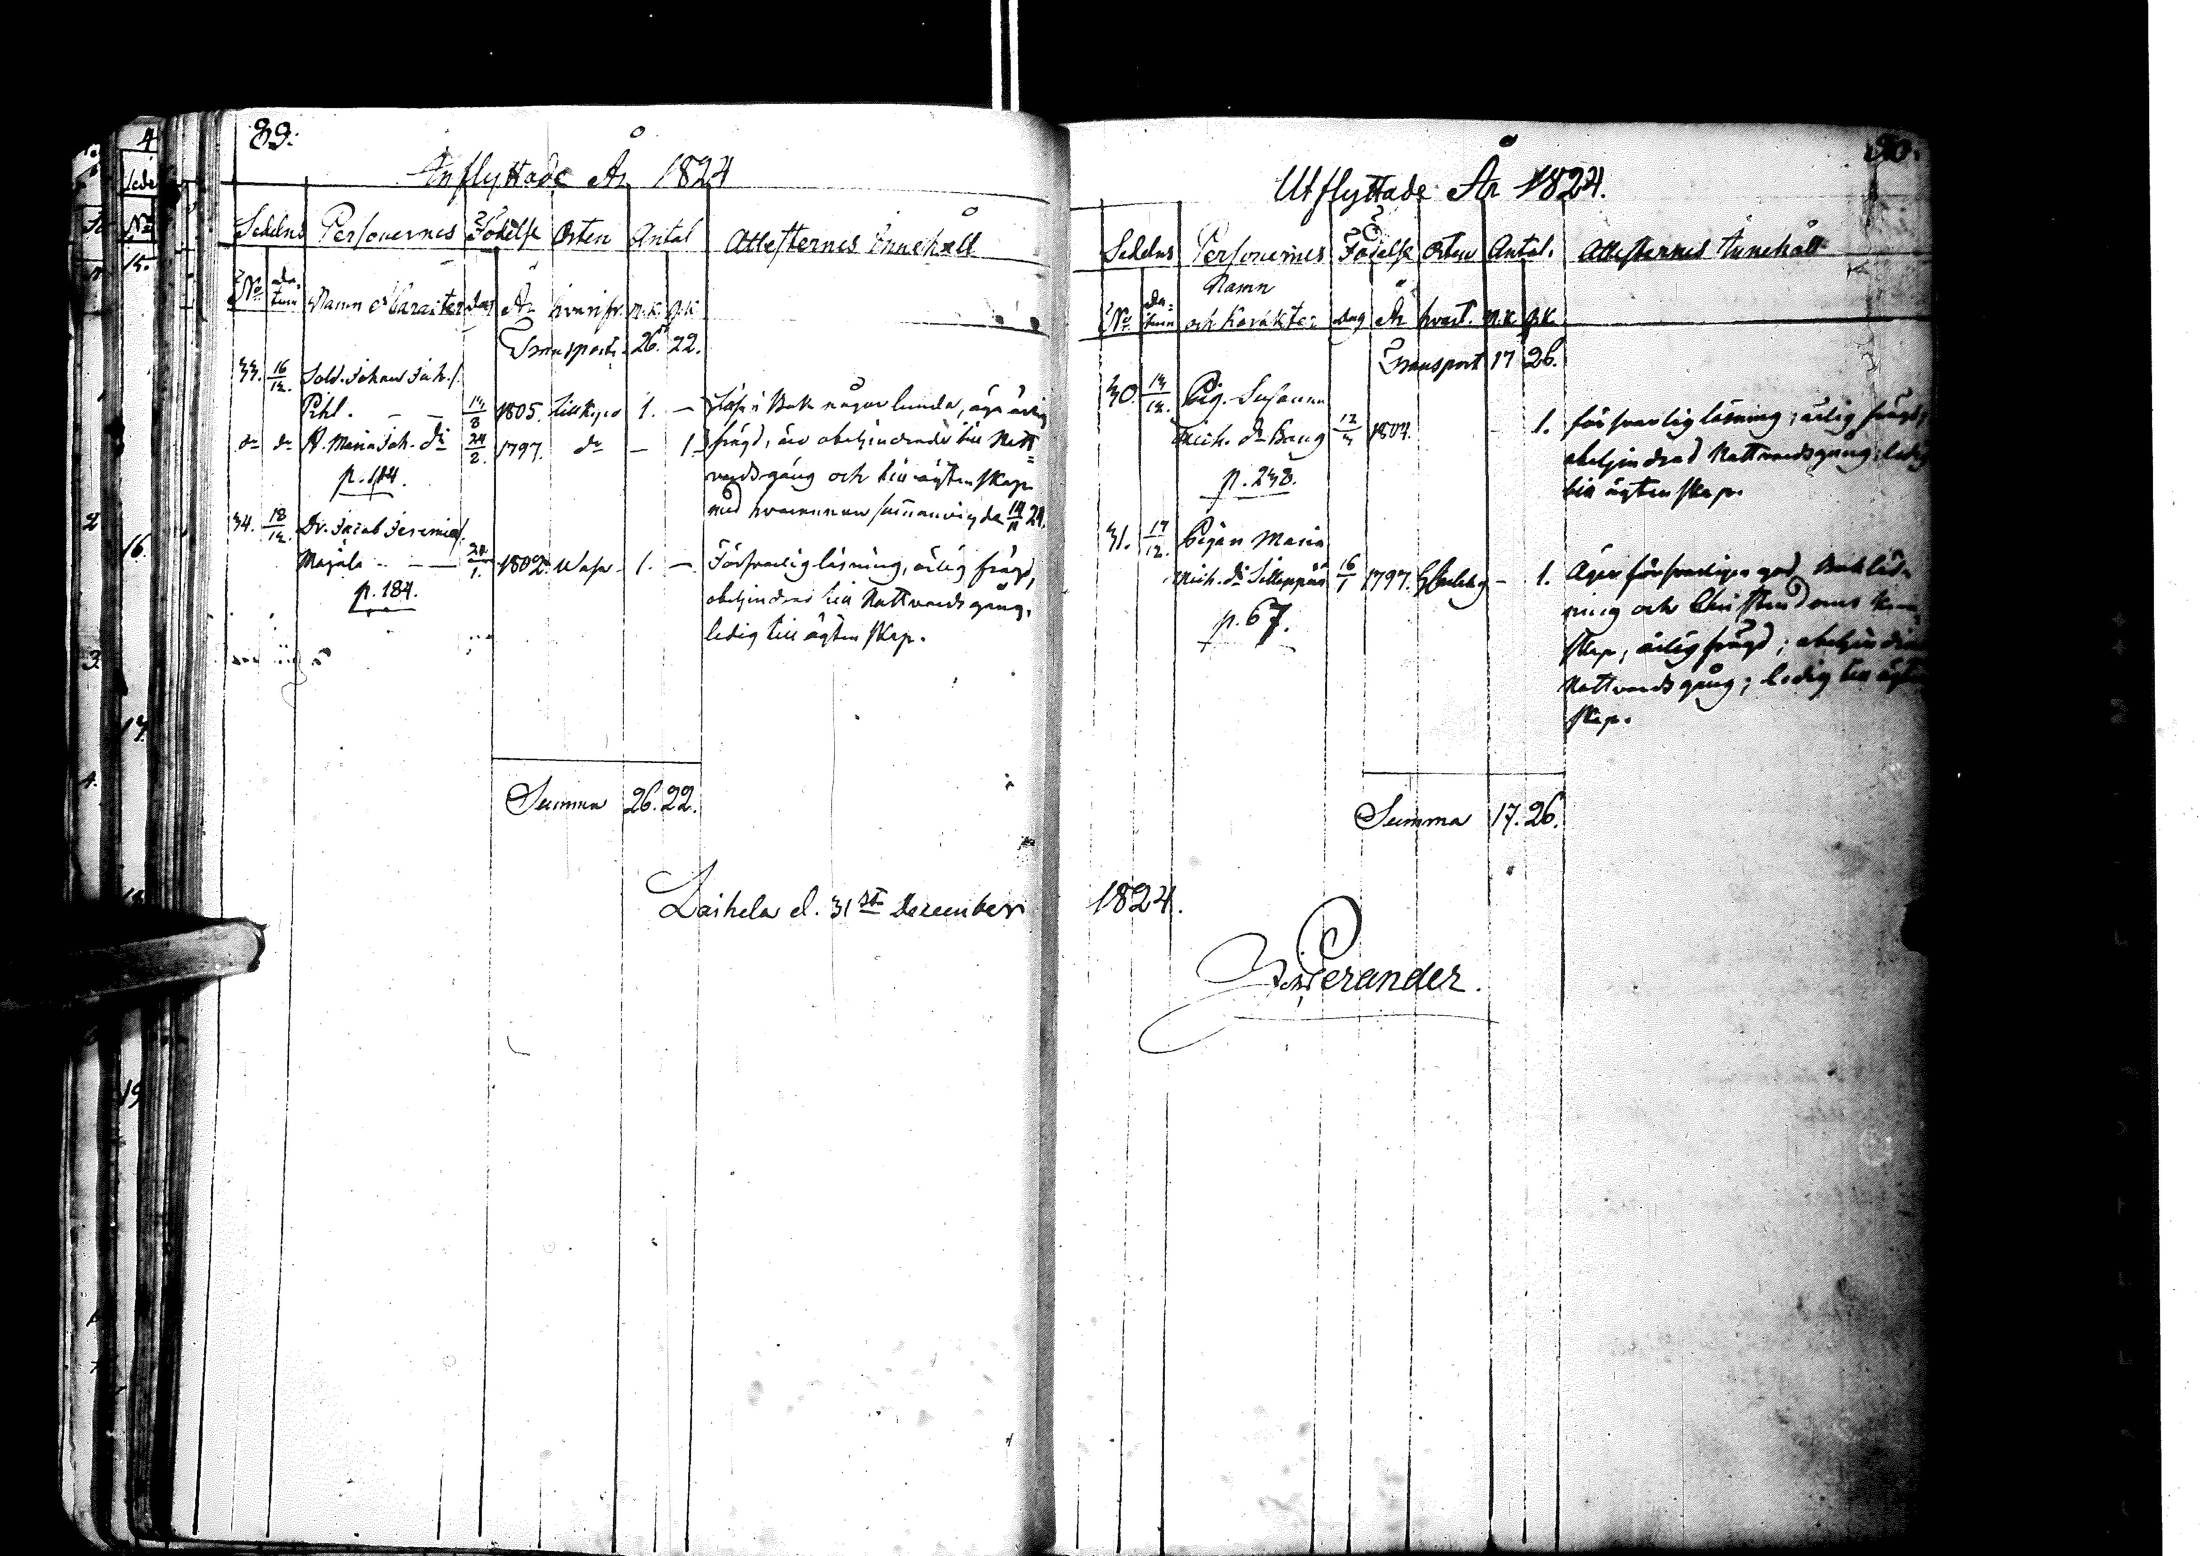 89.
Inflyttade År 1824
Sedelns Personernes Födelse Orten Antal Attesternes Innehåll
No datum Namn o Caracter dag År hvarifr. m.k. q.k.
Transport 26. 22.
33. 16/12. Sold. Johan Joh. s.
Pihl. — — 13/8 1805. Lillkyro 1. —
d:o d:o H. Maria Joh. d:r 24/2. 1797. d:o — 1.
p. 114.
Läser i Bok någorlunda, äga ärlig
frägd, äro obehindrade till Natt=
vardsgång och till ägtenskap
med hvarannan
34. 18/12. Dr. Jacob Jeremias s.
Majala — — 1. 1802. Wasa 1. —
p. 184.
Försvarlig läsning, ärlig frägd,
obehindrad till Nattvardsgång,
ledig till ägtenskap.
Summa 26. 22.
Laihela d. 31st December
90.
Utflyttade År 1824.
Sedelns Personernes Födelse Orten Antal. Attesternes Innehåll
Namn
No datum och Karakter dag År hvart. m.k. q.k.
Transport 17 26.
30. 13/12. Pig. Susanna
Mich. d:r Bang 12/3 1804. - 1.
p. 238.
försvarlig läsning; ärlig frägd;
obehindrad Nattvardsgång; ledig
till ägtenskap.
31. 17/12. Pigan Maria
Mich. d:r 16/1 1797. - 1.
p. 67.
Äger försvarligen god Bokläs-
ning och Christendoms
skap, ärlig frägd; obehindrad
Nattvardsgång; ledig till ägten
skap.
Summa 17. 26.
1824.
Perander.